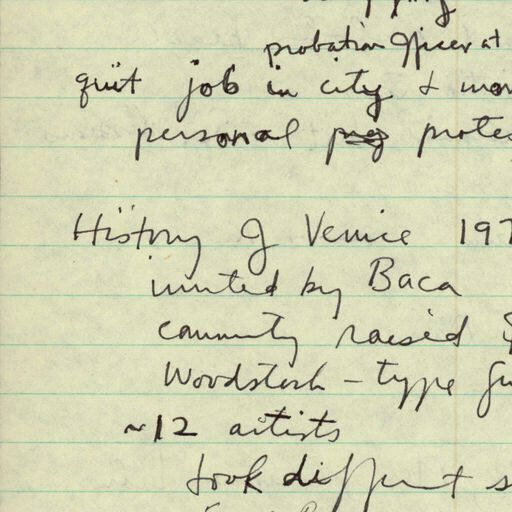 probation officer at
quit job in city & mov
personal protes
History of Venice 197
invited by Baca
community raised $
Woodstock - type fu
~12 artists
took different s